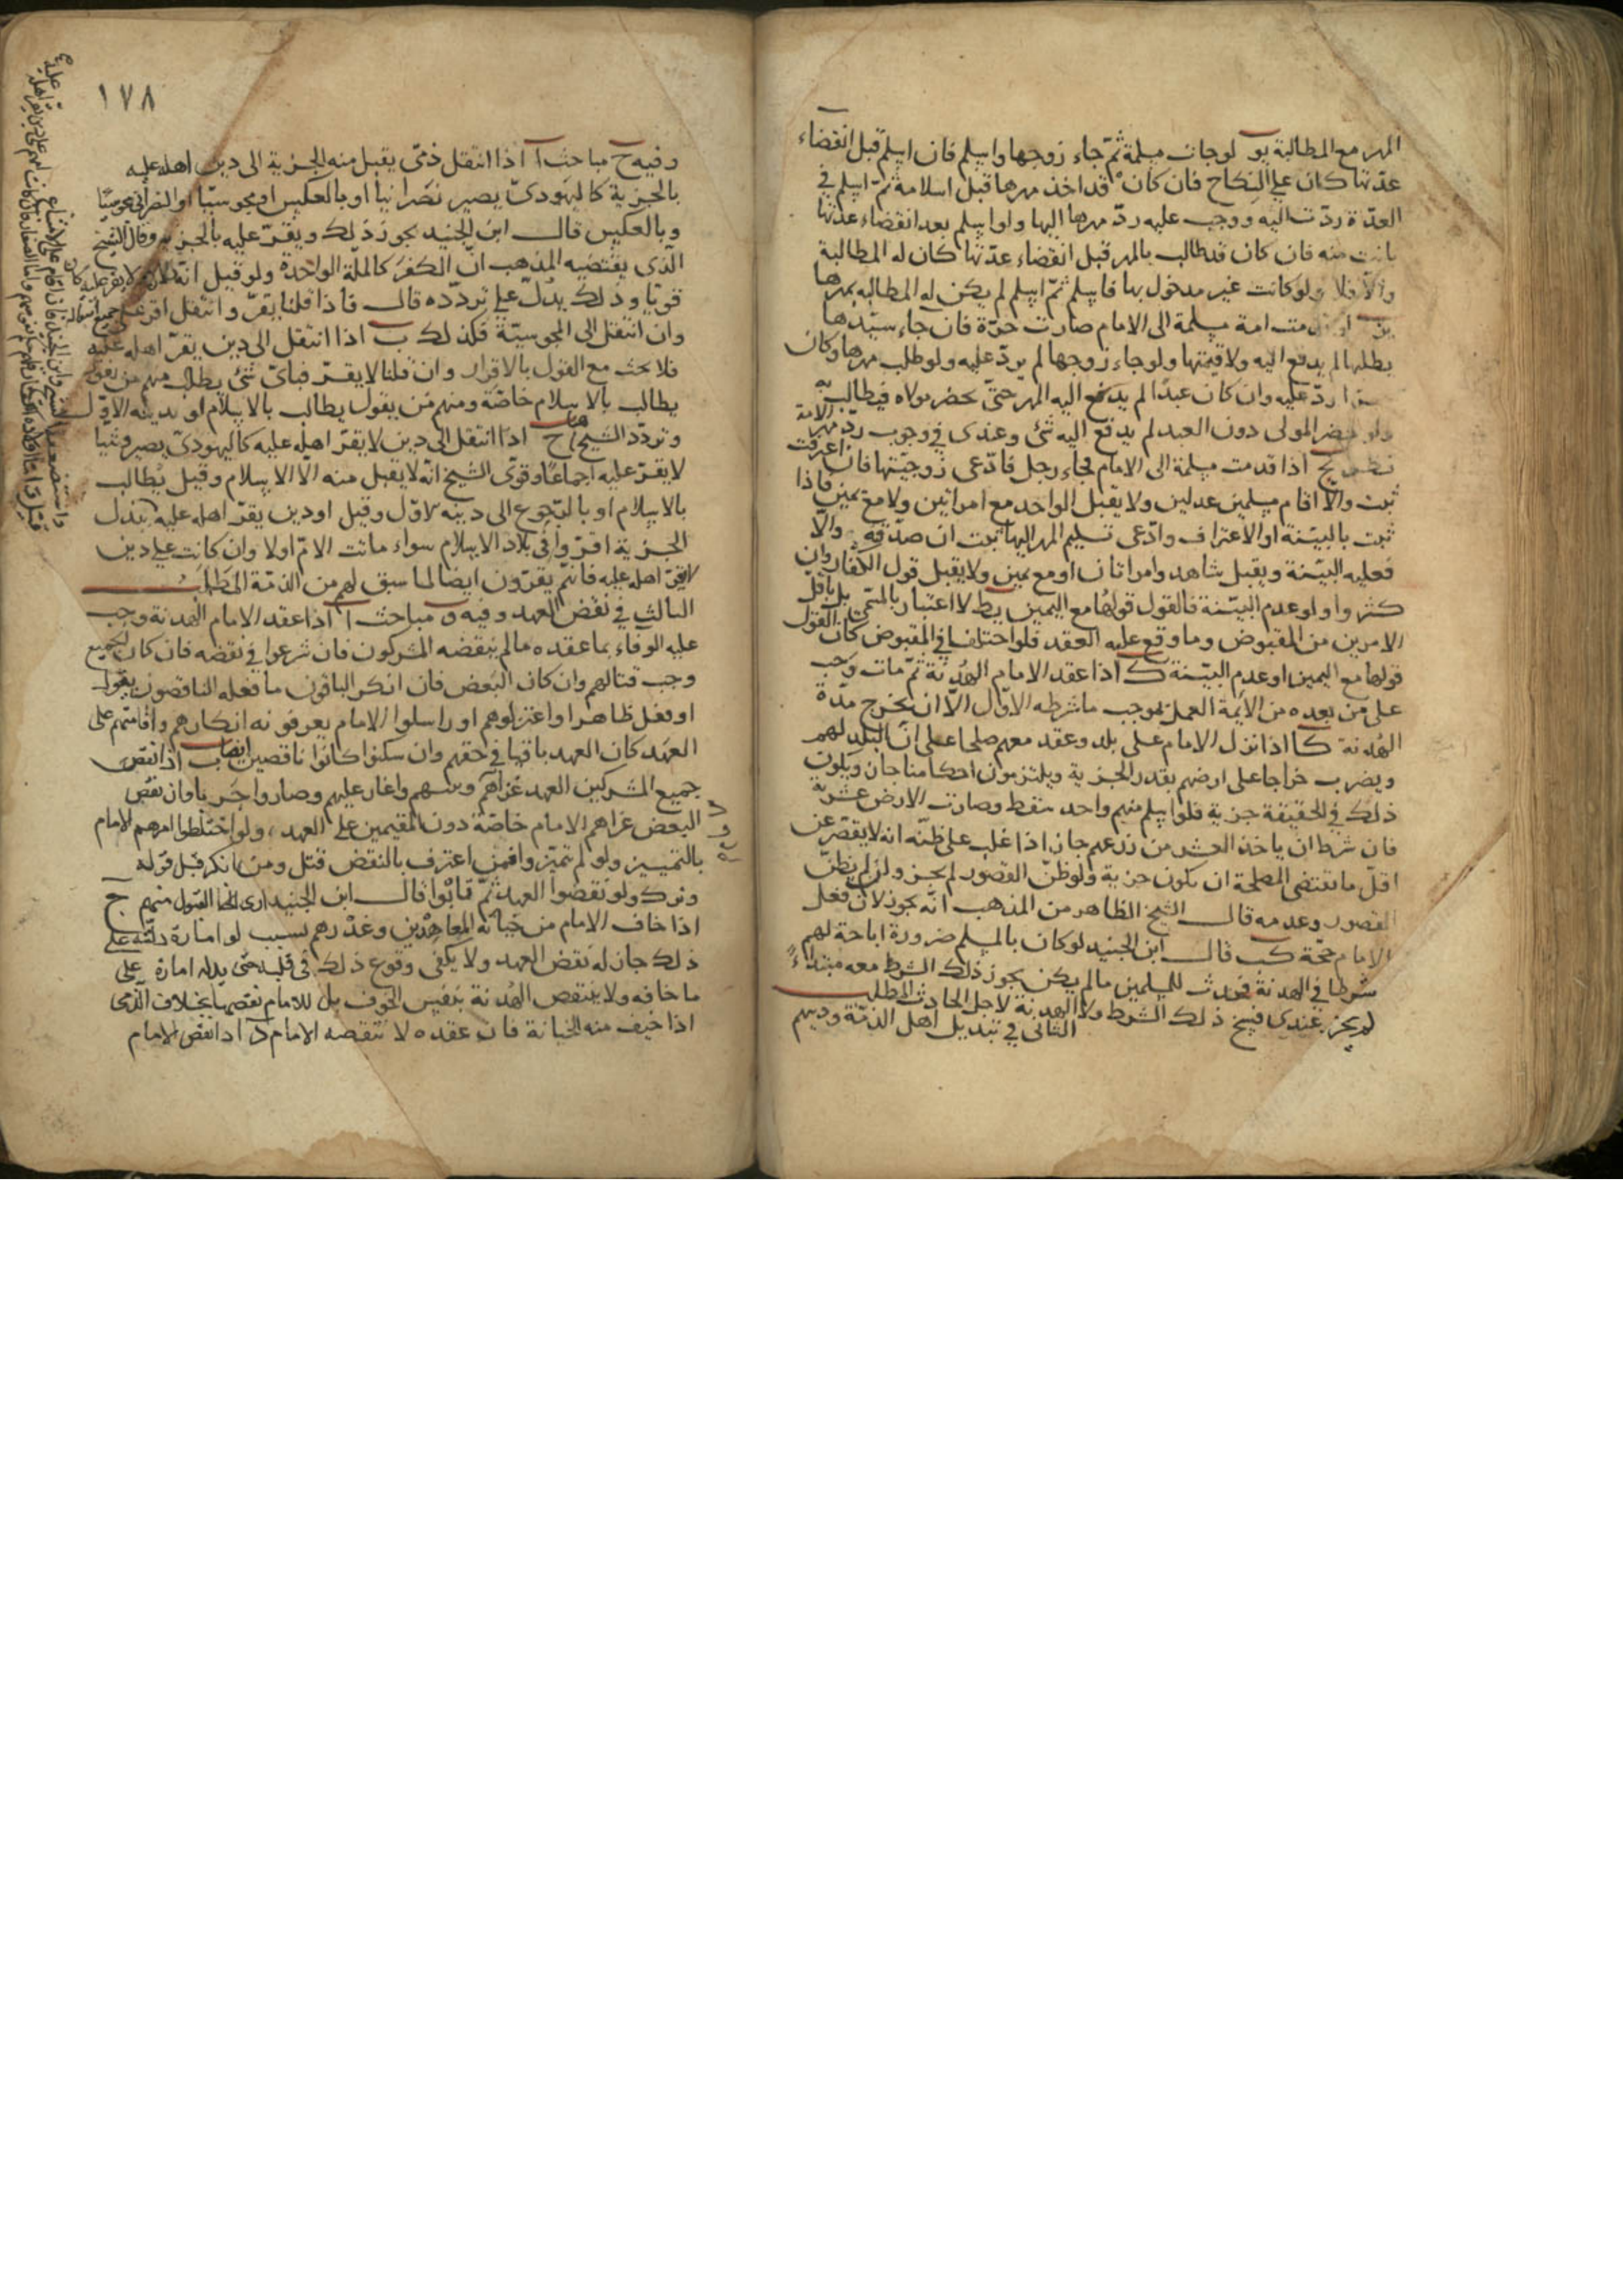 المهر مع المطالبة يو لو جات مسلمة ثم جاء زوجها واسلم فان اسلم قبل انقضاء
عدتها كان على النكاح فان كان قد اخذ مهرها قبل اسلامه ثم اسلم في
العدة ردت اليه ووجب عليه رد مهرها اليها ولو اسلم بعد انقضاء عدتها
بانت منه فان كان قد طالب بالمهر قبل انقضاء عدتها كان له المطالبة
والا فلا ولو كانت غير مدخول بها فاسلم ثم اسلم لم يكن له المطالبه بمهرها
يز قدمت امة مسلمة الى الامام صارت حرة فان جاء سيدها
يطلبها لم يدفع اليه ولا قيمتها ولو جاء زوجها لم يرد عليه ولو طلب مهرها وكان
حرا رد عليه وان كان عبدا لم يدفع اليه المهر حتى يحضر مولاه فيطالب به
ولو حضر المولى دون العبد لم يدفع اليه شئ وعندى في وجوب رد مهر الامة
نظر يح اذا قدمت مسلمة الى الامام فجاء رجل فادعى زوجيتها فان اعترفت
ثبت والا اقام مسلمين عدلين ولا يقبل الواحد مع امراتين ولا مع يمين فاذا
ثبت بالبينة او الاعتراف وادعى تسليم المهر اليها ثبت ان صدقه والا
فعليه البينة ويقبل شاهد وامراتان او مع يمين ولا يقبل قول الكفار وان
كثروا ولو عدم البينة فالقول قولها مع اليمين يط لا اعتبار بالمسمى بل باقل
الامرين من المقبوض وما وقع عليه العقد فلو اختلفا في المقبوض كان القول
قولها مع اليمين او عدم البينة ك اذا عقد الامام الهدنة ثم مات وجب
على من بعده من الائمة العمل بموجب ما شرطه الاول الا ان يخرج مدة
الهدنة كا اذا نزل الامام على بلد وعقد معهم صلحا على ان البلد لهم
ويضرب خراجا على ارضهم بقدر الجزية ويلتزمون احكامنا جاز ويكون
ذلك في الحقيقة جزية فلو اسلم منهم واحد سقط وصارت الارض عشرية
فان شرط ان ياخذ العشر من زرعهم جاز اذا غلب على ظنه انه لا يقصر عن
اقل ما تقتضى المصلحة ان يكون جزية ولو ظن القصور لم يجز ولو لم يظن
القصور وعدمه قال الشيخ الظاهر من المذهب انه يجوز لان فعل
الامام حجة كب قال ابن الجنيد لو كان بالمسلم ضرورة اباحة لهم
شرطا في الهدنة فحدث للمسلمين مالم يكن يجوز ذلك الشرط معه مبتداء
لم يجز عندى فسخ ذلك الشرط ولا الهدنة لاجل الحادث المطلب
الثانى في تبديل اهل الذمة ودينهم
١٧٨
وفيه ح مباحث ا اذا انتقل ذمى يقبل منه الجزية الى دين اهله عليه
بالجزية كاليهودى يصير نصرانيا او بالعكس او مجوسيا او النصرانى مجوسيا
وبالعكس قال ابن الجنيد يجوز ذلك ويقر عليه بالجزية وقال الشيخ
الذى يقتضيه المذهب ان الكفر كالملة الواحدة ولو قيل انه لا يقر عليه كان
قويا وذلك يدل على تردده قال فاذا قلنا يقر وانتقل اقر على جميع احكامه
وان انتقل الى المجوسية فكذلك ب اذا انتقل الى دين يقر اهله عليه
فلا بحث مع القول بالاقرار وان قلنا لا يقر فباى شئ يطالب منهم من يقول
يطالب بالاسلام خاصة ومنهم من يقول يطالب بالاسلام او بدينه الاول
وتردد الشيخ هنا ح اذا انتقل الى دين لا يقر اهله عليه كاليهودى يصير وثنيا
لا يقر عليه اجماعا وقوى الشيخ انه لا يقبل منه الا الاسلام وقيل يطالب
بالاسلام او بالرجوع الى دينه الاول وقيل او دين يقر اهله عليه ببذل
الجزية اقروا في بلاد الاسلام سواء ماتت الام اولا وان كانت على دين
لا يقر اهله عليه فانهم يقرون ايضا لما سبق لهم من الذمة المطلب
الثالث في نقض العهد وفيه و مباحث ا اذا عقد الامام الهدنة وجب
عليه الوفاء بما عقده مالم ينقضه المشركون فان شرعوا في نقضه فان كان الجميع
وجب قتالهم وان كان البعض فان انكر الباقون ما فعله الناقصون بقول
او فعل ظاهر او اعتزلوهم او راسلوا الامام يعرفونه انكارهم واقامتهم على
العهد كان العهد باقيا في حقهم وان سكتوا كانوا ناقضين ايضا ب اذا نقض
جميع المشركين العهد غزاهم وبيتهم واغار عليهم وصاروا حربا وان نقض
البعض غزاهم الامام خاصة دون المقيمين على العهد ولو اختلطوا امرهم الامام
بالتمييز ولو لم تميز وا فمن اعترف بالنقض قتل ومن انكر قبل قوله
وترك ولو نقضوا العهد ثم تابوا قال ابن الجنيد ارى القبول منهم ج
اذا خاف الامام من خيانة المعاهدين وغدرهم بسبب او امارة دلته على
ذلك جاز له نقض العهد ولا يكفى وقوع ذلك في قلبه حتى يدله امارة على
ما خافه ولا ينتقص الهدنة بنفس الخوف بل للامام نقضها بخلاف الذمى
اذا خيف منه الخيانة فان عقده لا ينقضه الامام د اذا نقض الامام